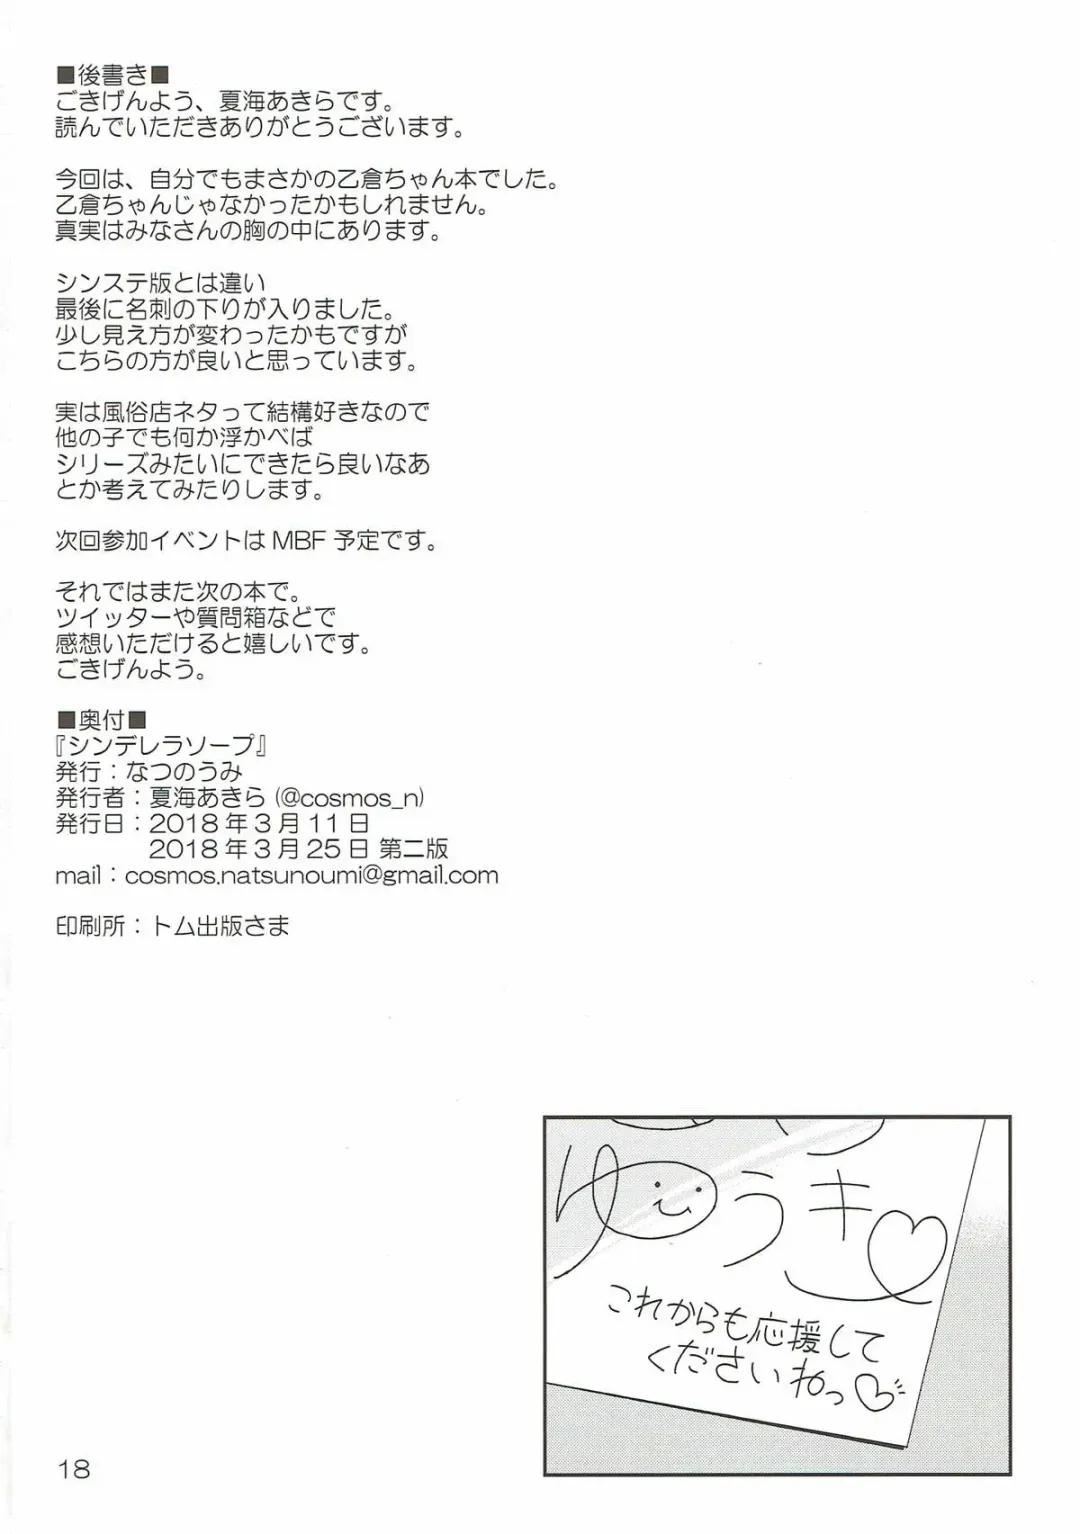 ■後書き■
ごきげんよう、夏海あきらです。
読んでいただきありがとうございます。
今回は、自分でもまさかの乙倉ちゃん本でした。
乙倉ちゃんじゃなかったかもしれません。
真実はみなさんの胸の中にあります。
シンステ版とは違い
最後に名刺の下りが入りました。
少し見え方が変わったかもですが
こちらの方が良いと思っています。
実は風俗店ネタって結構好きなので
他の子でも何か浮かべば
シリーズみたいにできたら良いなあ
とか考えてみたりします。
次回参加イベントは MBF 予定です。
それではまた次の本で。
ツイッターや質問箱などで
感想いただけると嬉しいです。
ごきげんよう。
■奥付■
『シンデレラソープ』
発行：なつのうみ
発行者：夏海あきら (@cosmos_n)
発行日：2018 年 3 月 11 日
2018 年 3 月 25 日 第二版
mail：cosmos.natsunoumi@gmail.com
印刷所：トム出版さま
ゆうき♡
これからも応援して
くださいねっ♡
18